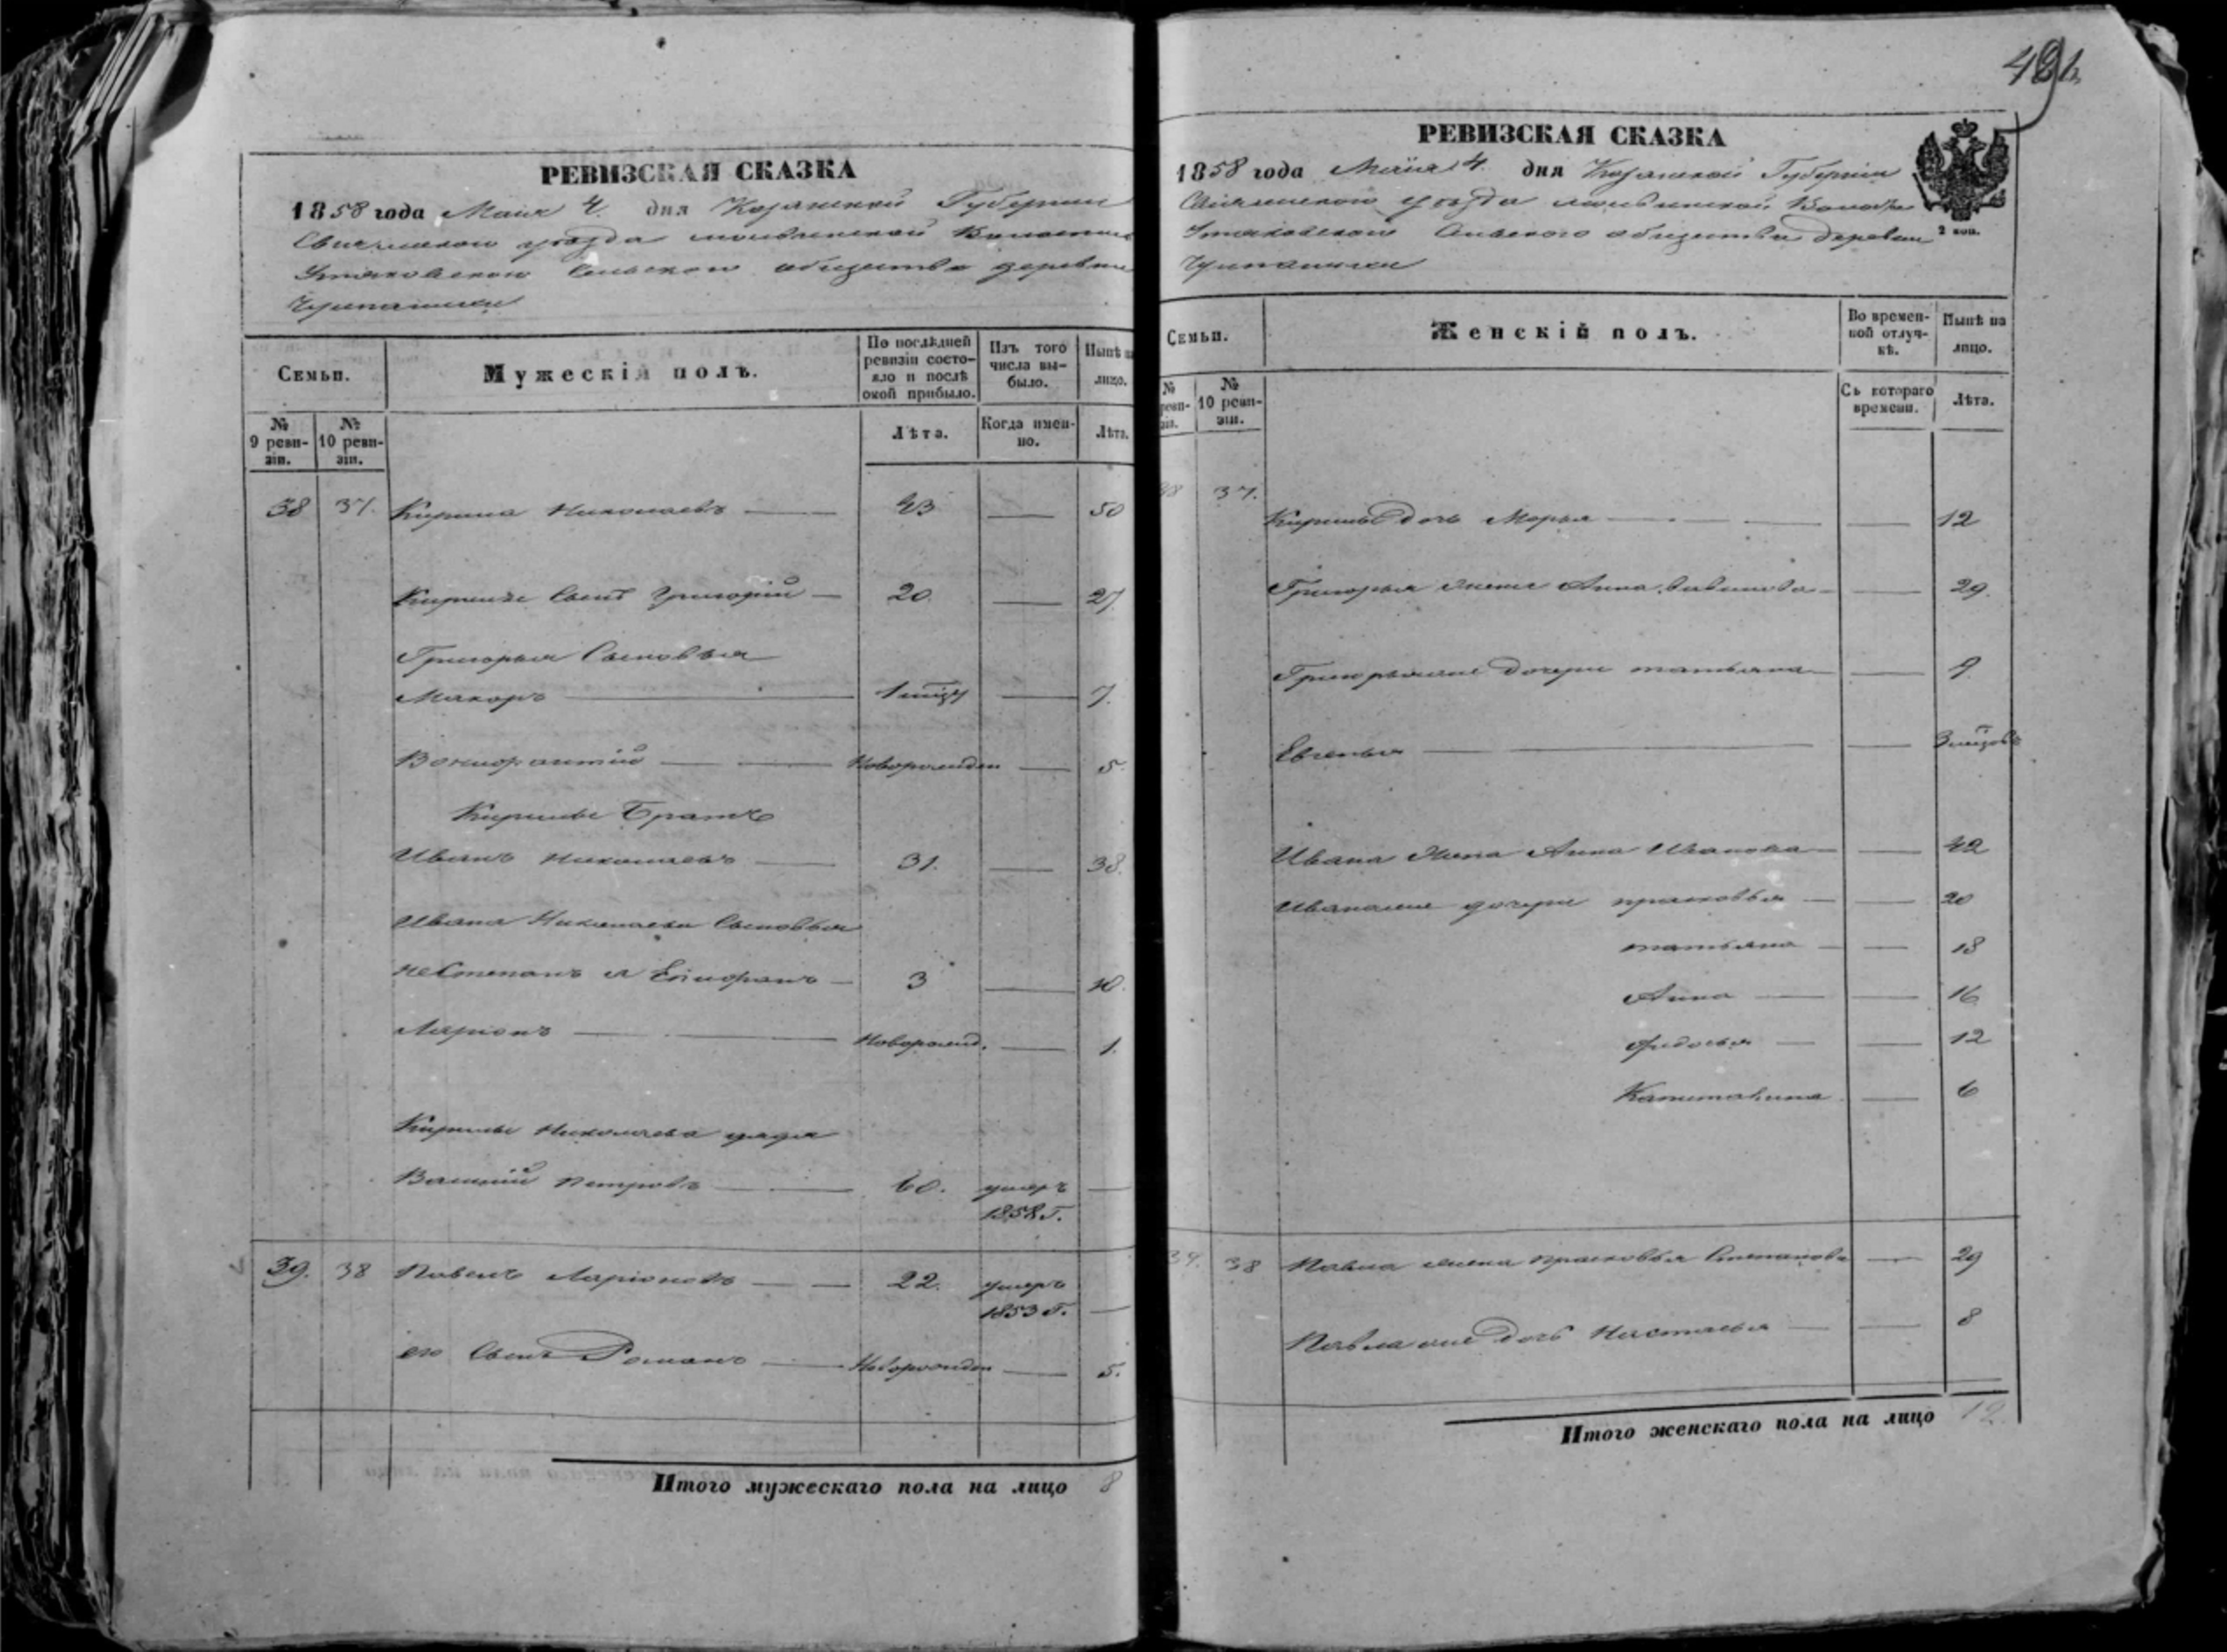 РЕВИЗСКАЯ СКАЗКА
1858 года Маия 4. дня Казанской Губернии
уезда Волости
Сельского общества деревни
Семьи.
Мужескій полъ.
По послѣдней ревизіи состояло и послѣ оной прибыло.
Изъ того числа выбыло.
Нынѣ на лицо.
№ 9 ревизіи.
№ 10 ревизіи.
Лѣта.
Когда именно.
Лѣта.
38 37. Кирила Николаевъ 43 50
Кирилы Сынъ Григорій 20. 27
Григорья Сыновья
Макаръ 7.
Новорожден 5.
Кирилы Братъ
Иванъ Николаевъ 31. 38.
Ивана Николаева Сыновья
неСтепанъ а Епифанъ 3 10.
Ларіонъ Новорожд. 1.
Кирилы Николаева дядя
Василій Петровъ 60. умеръ
1858 г.
39. 38 Павелъ Ларіоновъ 22. умеръ
1853 г.
его Сынъ Романъ Новорожден 5.
Итого мужескаго пола на лицо 8
РЕВИЗСКАЯ СКАЗКА
1858 года Маия 4. дня Казанской Губерніи
уезда Волости
Сельского общества деревни
2 коп.
Семьи.
Женскій полъ.
Во временной отлучкѣ.
Нынѣ на лицо.
№ ревизіи.
№ 10 ревизіи.
Съ котораго времени.
Лѣта.
38 37.
Кирилы дочь Марья 12
Григорья жена Анна 29.
дочери татьяна 9.
Евгенья
Ивана Жена Анна Иванова 42
дочери прасковья 20
татьяна 18
Анна 16
Федосья 12
Капитолина 6
39. 38 Павла жена прасковья Степанова 29
дочь Настасья 8
Итого женскаго пола на лицо 12.